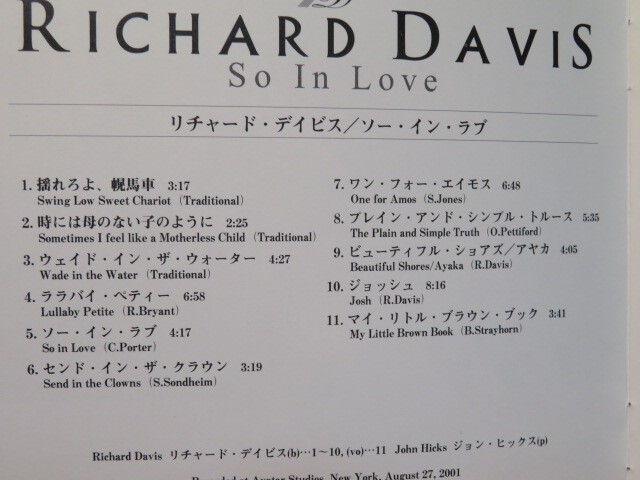 RICHARD DAVIS
So In Love
リチャード・デイビス／ソー・イン・ラブ
1. 揺れろよ、幌馬車 3:17
Swing Low Sweet Chariot (Traditional)
2. 時には母のない子のように 2:25
Sometimes I feel like a Motherless Child (Traditional)
3. ウェイド・イン・ザ・ウォーター 4:27
Wade in the Water (Traditional)
4. ララバイ・ペティー 6:58
Lullaby Petite (R.Bryant)
5. ソー・イン・ラブ 4:17
So in Love (C.Porter)
6. センド・イン・ザ・クラウン 3:19
Send in the Clowns (S.Sondheim)
7. ワン・フォー・エイモス 6:48
One for Amos (S.Jones)
8. プレイン・アンド・シンプル・トルース 5:35
The Plain and Simple Truth (O.Pettiford)
9. ビューティフル・ショアズ／アヤカ 4:05
Beautiful Shores/Ayaka (R.Davis)
10. ジョッシュ 8:16
Josh (R.Davis)
11. マイ・リトル・ブラウン・ブック 3:41
My Little Brown Book (B.Strayhorn)
Richard Davis リチャード・デイビス(b)…1〜10, (vo)…11 John Hicks ジョン・ヒックス(p)
Recorded at Avatar Studios, New York, August 27, 2001